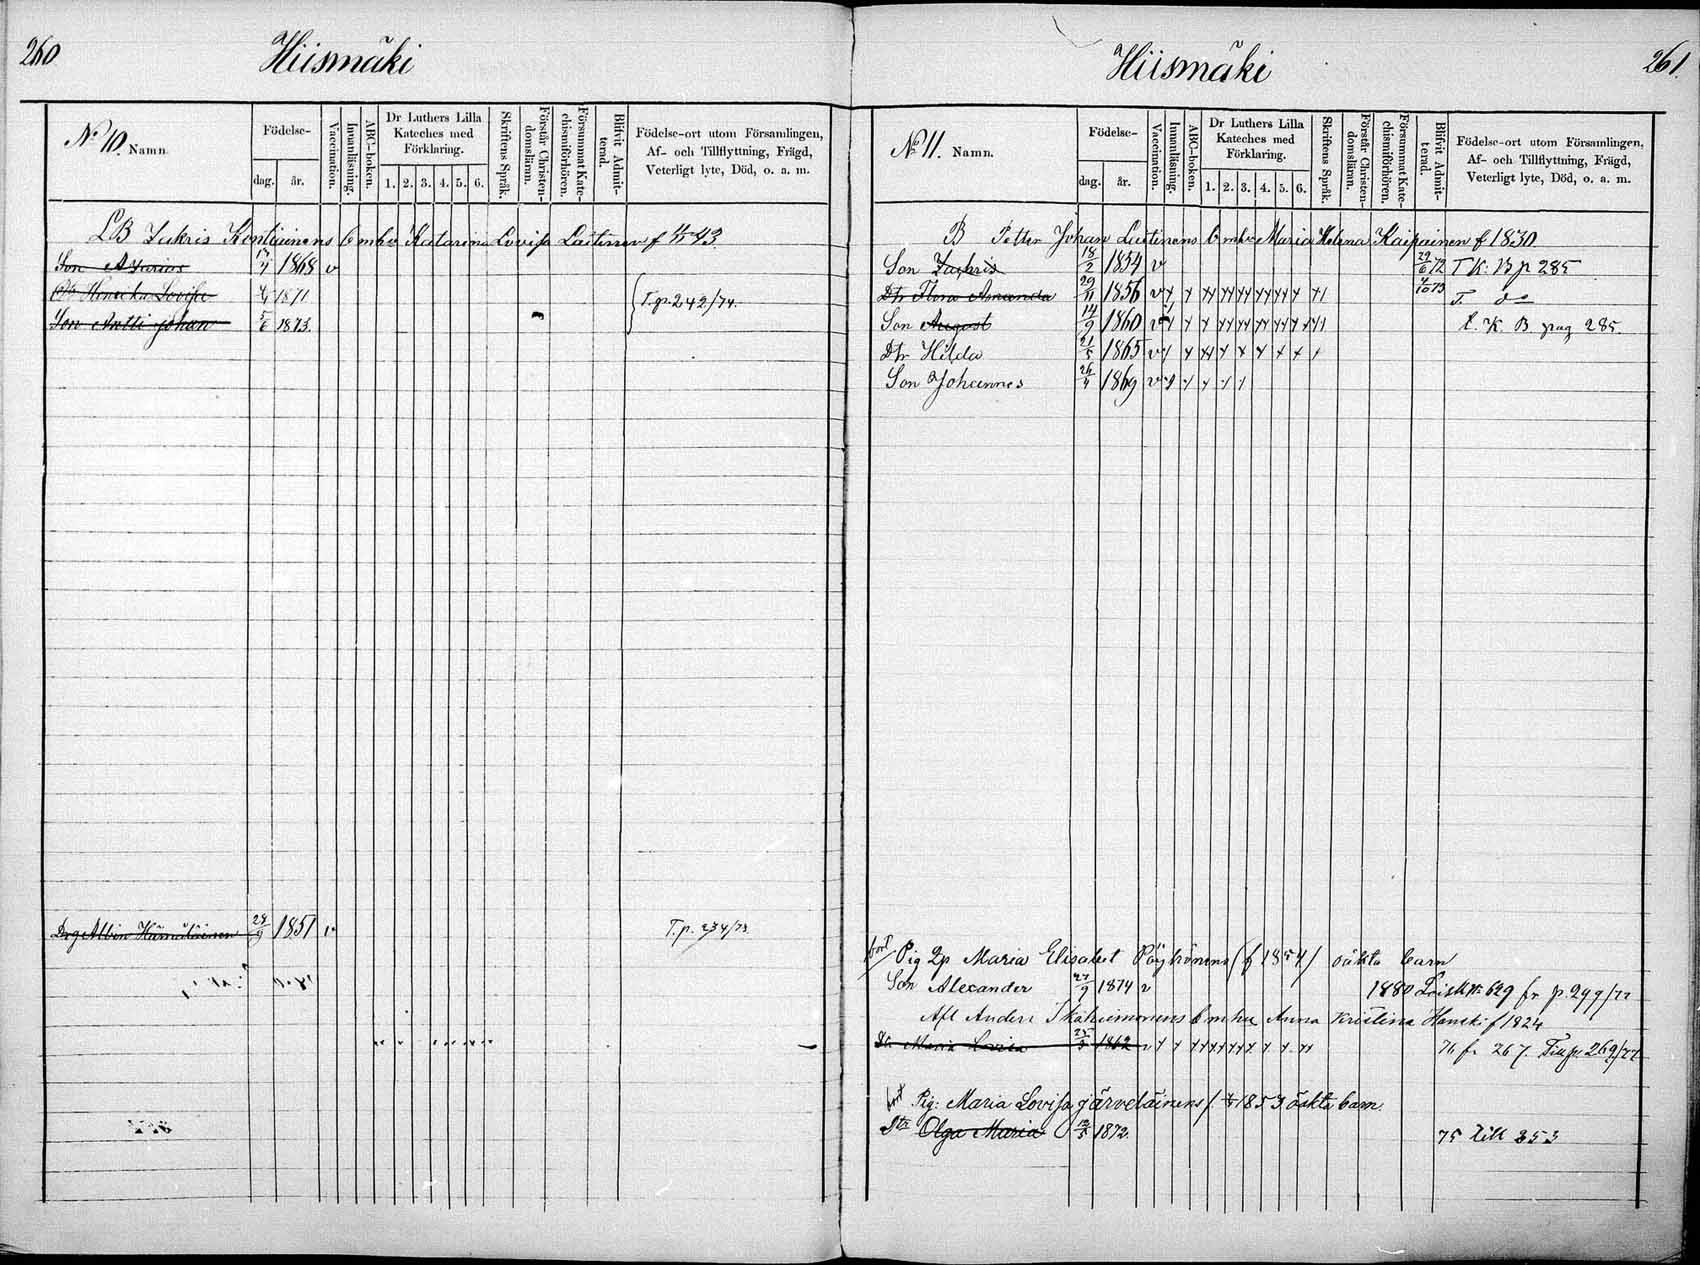 260 Hiismäki
No 10. Namn.
Födelse-
dag. år.
Vaccination.
Innanläsning.
ABC-boken.
Dr Luthers Lilla Kateches med Förklaring.
1. 2. 3. 4. 5. 6.
Skriftens Språk.
Förstår Christendomslämn.
Försummat Katechismiförhören.
Blifvit Admitterad.
Födelse-ort utom Församlingen,
Af- och Tillflyttning, Frägd,
Veterligt lyte, Död, o. a. m.
LB Zakris Kontiainens Enka Katarina Lovisa Laitinen f 43
Son Azarias 1868 v
Dtr Henrika Lovisa 1871 T.p. 242/74.
Son Antti Johan 5/6 1873.
Drg Albin Hämäläinen 1851 v T.p. 234/73
Hiismäki 261.
No 11. Namn.
Födelse-
dag. år.
Vaccination.
Innanläsning.
ABC-boken.
Dr Luthers Lilla Kateches med Förklaring.
1. 2. 3. 4. 5. 6.
Skriftens Språk.
Förstår Christendomslämn.
Försummat Katechismiförhören.
Blifvit Admitterad.
Födelse-ort utom Församlingen,
Af- och Tillflyttning, Frägd,
Veterligt lyte, Död, o. a. m.
B Petter Johan Laitinens Enka Maria Helena Kaipainen f 1830
Son Zachris 18/2 1854 v 29/6 72 T K. B p 285
Dtr Flora Amanda 29/11 1856 v 4/10 73 T. do
Son August 14/9 1860 v t. K. B pag 285.
Dtr Hilda 21/5 1865 v
Son Johannes 26/4 1869 v
bort Pig Lp Maria Elisabet Pöyhönens (f 1854) oäkta barn
Son Alexander 27/9 1874 v 1880 No 629 fr p. 299/77
Afl Anders Ikäheimonens Enka Anna Kristina Hanski f 1824
Dr Maria Lovisa 25/3 1862 v 76 fr 267. Till p. 269/77
bort Pig: Maria Lovisa Järveläinens f. 1853 oäkta barn.
Dtr Olga Maria 12/5 1872. 75 till 253